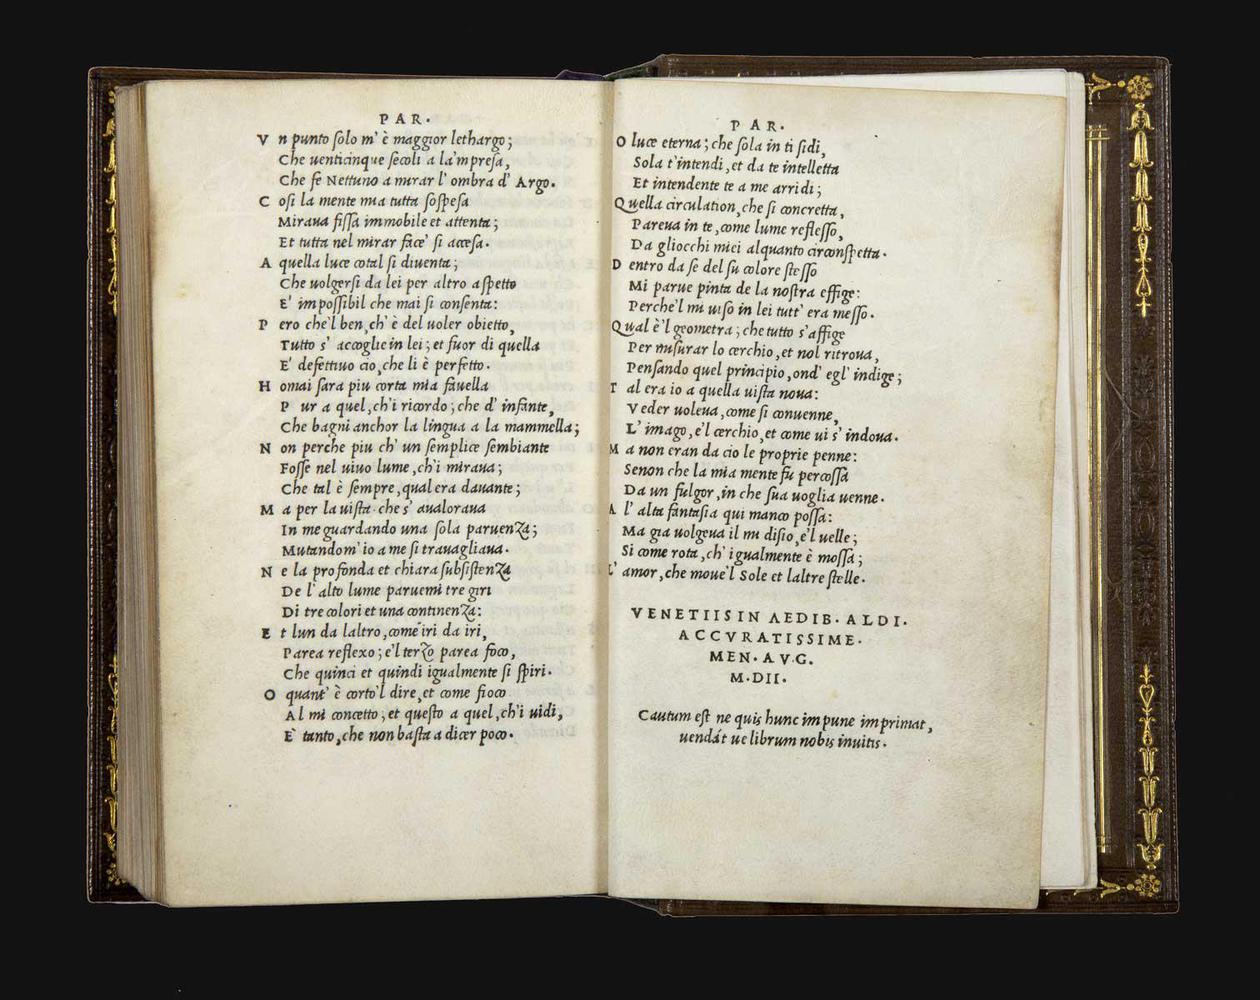 PAR.
V n punto solo m' è maggior lethargo;
Che uenticinque secoli a la'mpresa,
Che fe Nettuno a mirar l' ombra d' Argo.
C osi la mente mia tutta sospesa
Miraua fissa immobile et attenta;
Et tutta nel mirar face' si accesa.
A quella luce cotal si diuenta;
Che uolgersi da lei per altro aspetto
E' impossibil che mai si consenta:
P ero che'l ben, ch' è del uoler obietto,
Tutto s' accoglie in lei; et fuor di quella
E' defettiuo cio, che li è perfetto.
H omai sara piu corta mia fauella
P ur a quel, ch'i ricordo; che d' infante,
Che bagni anchor la lingua a la mammella;
N on perche piu ch' un semplice sembiante
Fosse nel uiuo lume, ch'i miraua;
Che tal è sempre, qual era dauante;
M a per la uista. che s' aualoraua
In me guardando una sola paruenza;
Mutandom' io a me si trauagliaua.
N e la profonda et chiara subsistenza
De l' alto lume paruemi tre giri
Di tre colori et una continenza:
E t lun da laltro, come iri da iri,
Parea reflexo; e'l terzo parea foco,
Che quinci et quindi igualmente si spiri.
O quant' è corto'l dire, et come fioco
Al mi concetto; et questo a quel, ch'i uidi,
E' tanto, che non basta a dicer poco.
PAR.
O luce eterna; che sola in ti sidi,
Sola t'intendi, et da te intelletta
Et intendente te a me arridi;
Quella circulation, che si concretta,
Pareua in te, come lume reflesso,
Da gliocchi miei alquanto circonspetta.
D entro da se del su colore stesso
Mi parue pinta de la nostra effige:
Perche'l mi uiso in lei tutt' era messo.
Qual è'l geometra; che tutto s'affige
Per misurar lo cerchio, et nol ritroua,
Pensando quel principio, ond' egl' indige;
T al era io a quella uista noua:
Veder uoleua, come si conuenne,
L' imago, e'l cerchio, et come ui s' indoua.
M a non eran da cio le proprie penne:
Senon che la mia mente fu percossa
Da un fulgor, in che sua uoglia uenne.
A l' alta fantasia qui manco possa:
Ma gia uolgeua il mi disio, e'l uelle;
Si come rota, ch' igualmente è mossa;
L' amor, che moue'l Sole et laltre stelle.
VENETIIS IN AEDIB. ALDI.
ACCVRATISSIME.
MEN. AVG.
M.DII.
Cautum est ne quis hunc impune imprimat,
uendát ue librum nobis inuitis.